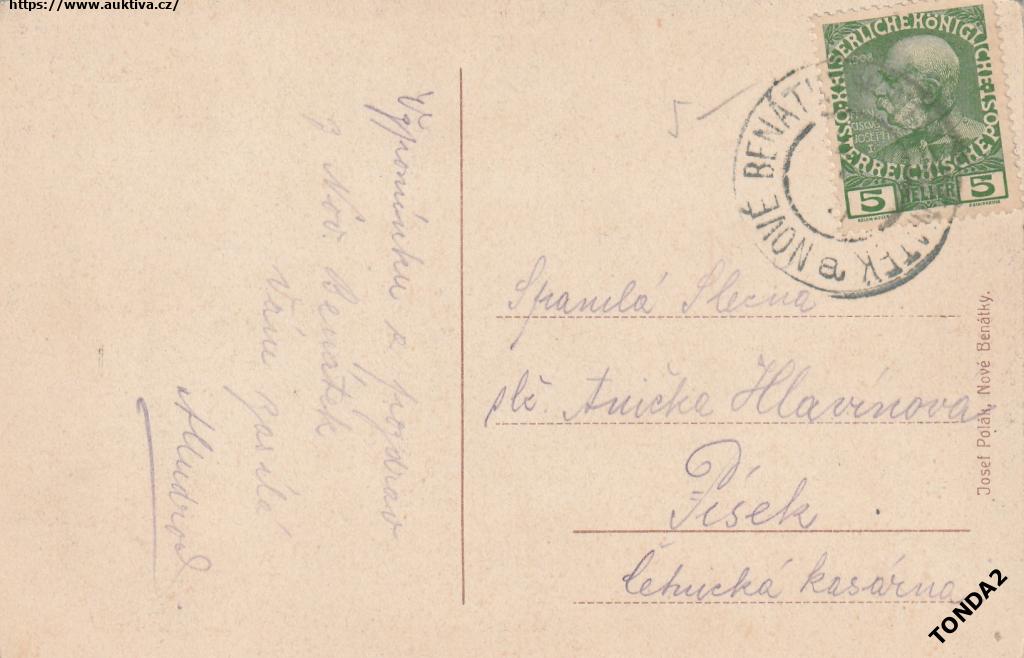 https://www.auktiva.cz/
Vzpomínku a pozdrav
z Nov. Benátek
Vám zasílá
KAISERLICHE KÖNIGLICHE
ÖSTERREICHISCHE POST
5 HELLER 5
NOVÉ BENÁTKY
Spanilá Slečna
slč. Anička Hlavínova
Písek
četnická kasárna
Josef Polák, Nové Benátky.
TONDA2